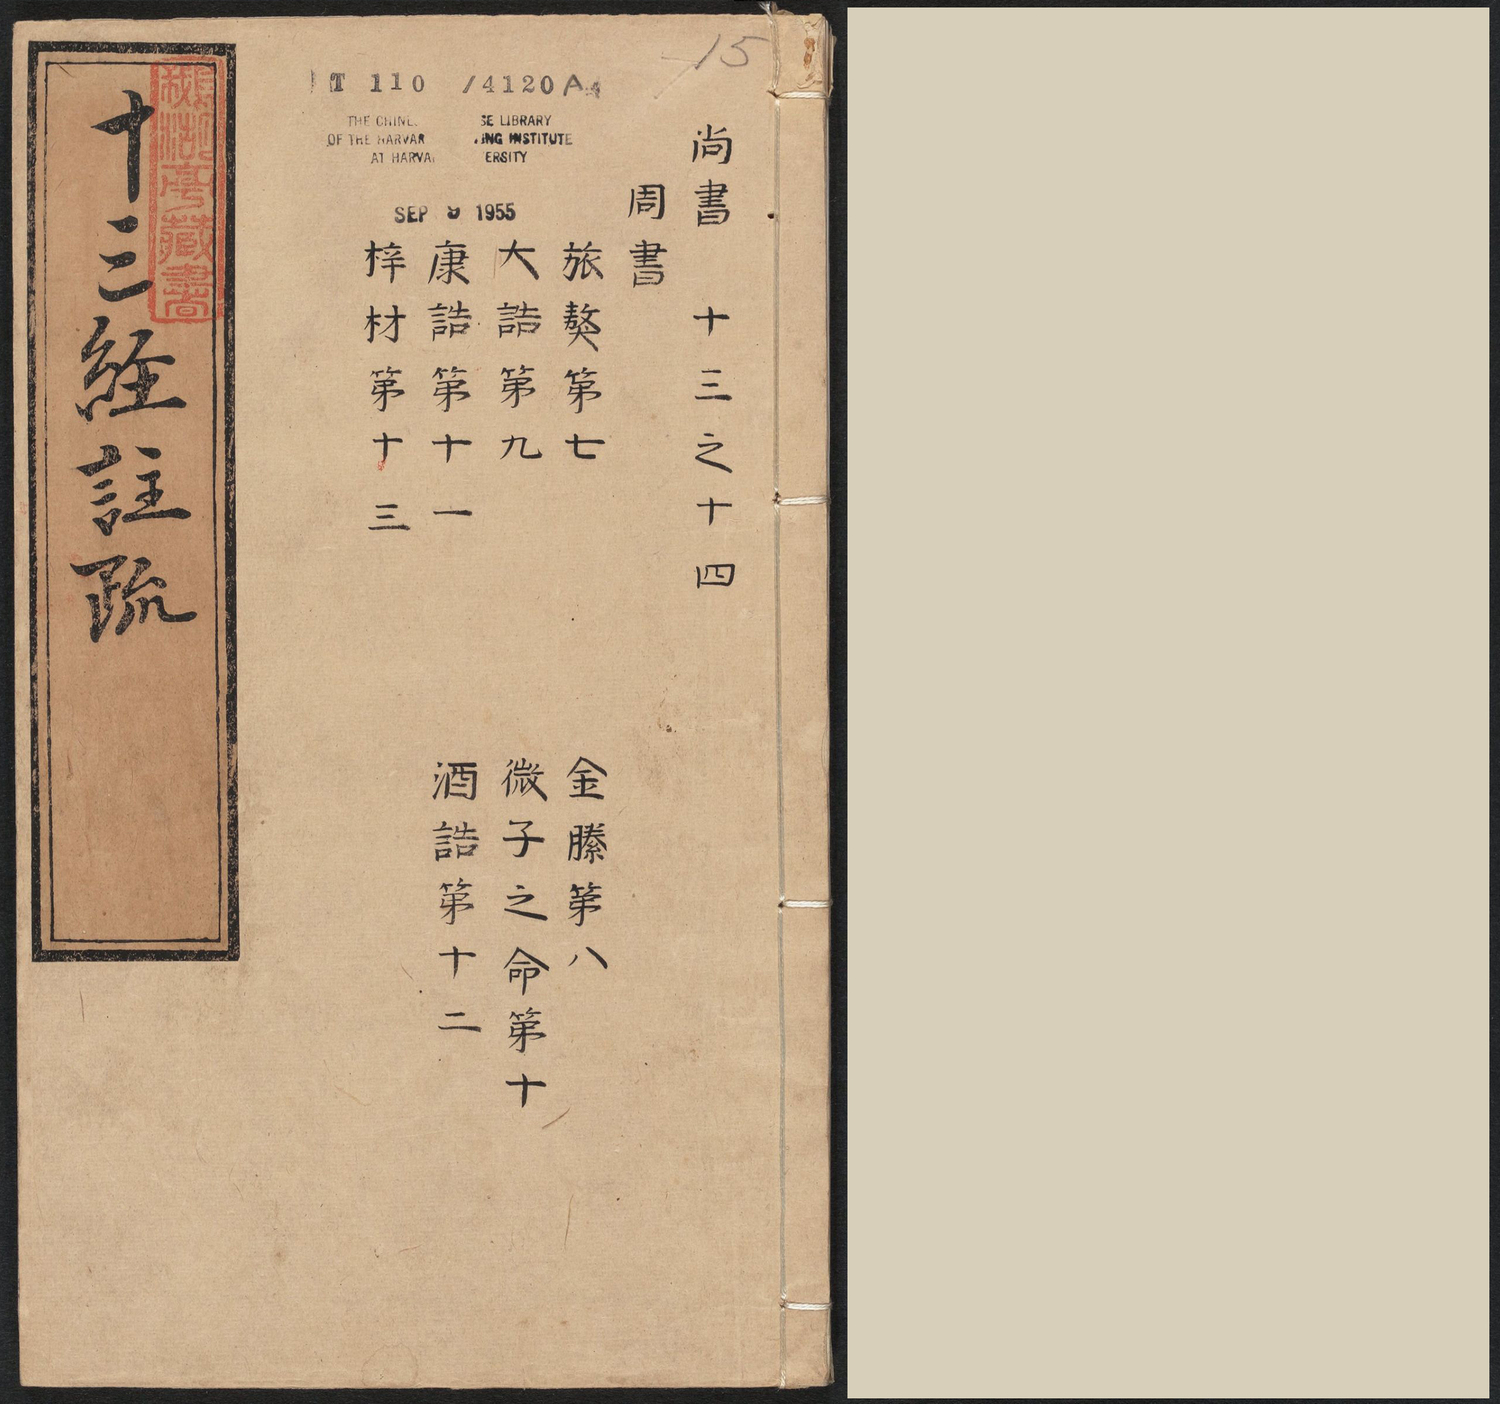 尚書 十三之十四
周書
旅獒第七 金縢第八
大誥第九 微子之命第十
康誥第十一 酒誥第十二
梓材第十三
十三經註疏
藏書
15
T 110 /4120A
THE CHINE SE LIBRARY
OF THE HARVAR ING INSTITUTE
AT HARVA ERSITY
SEP 9 1955